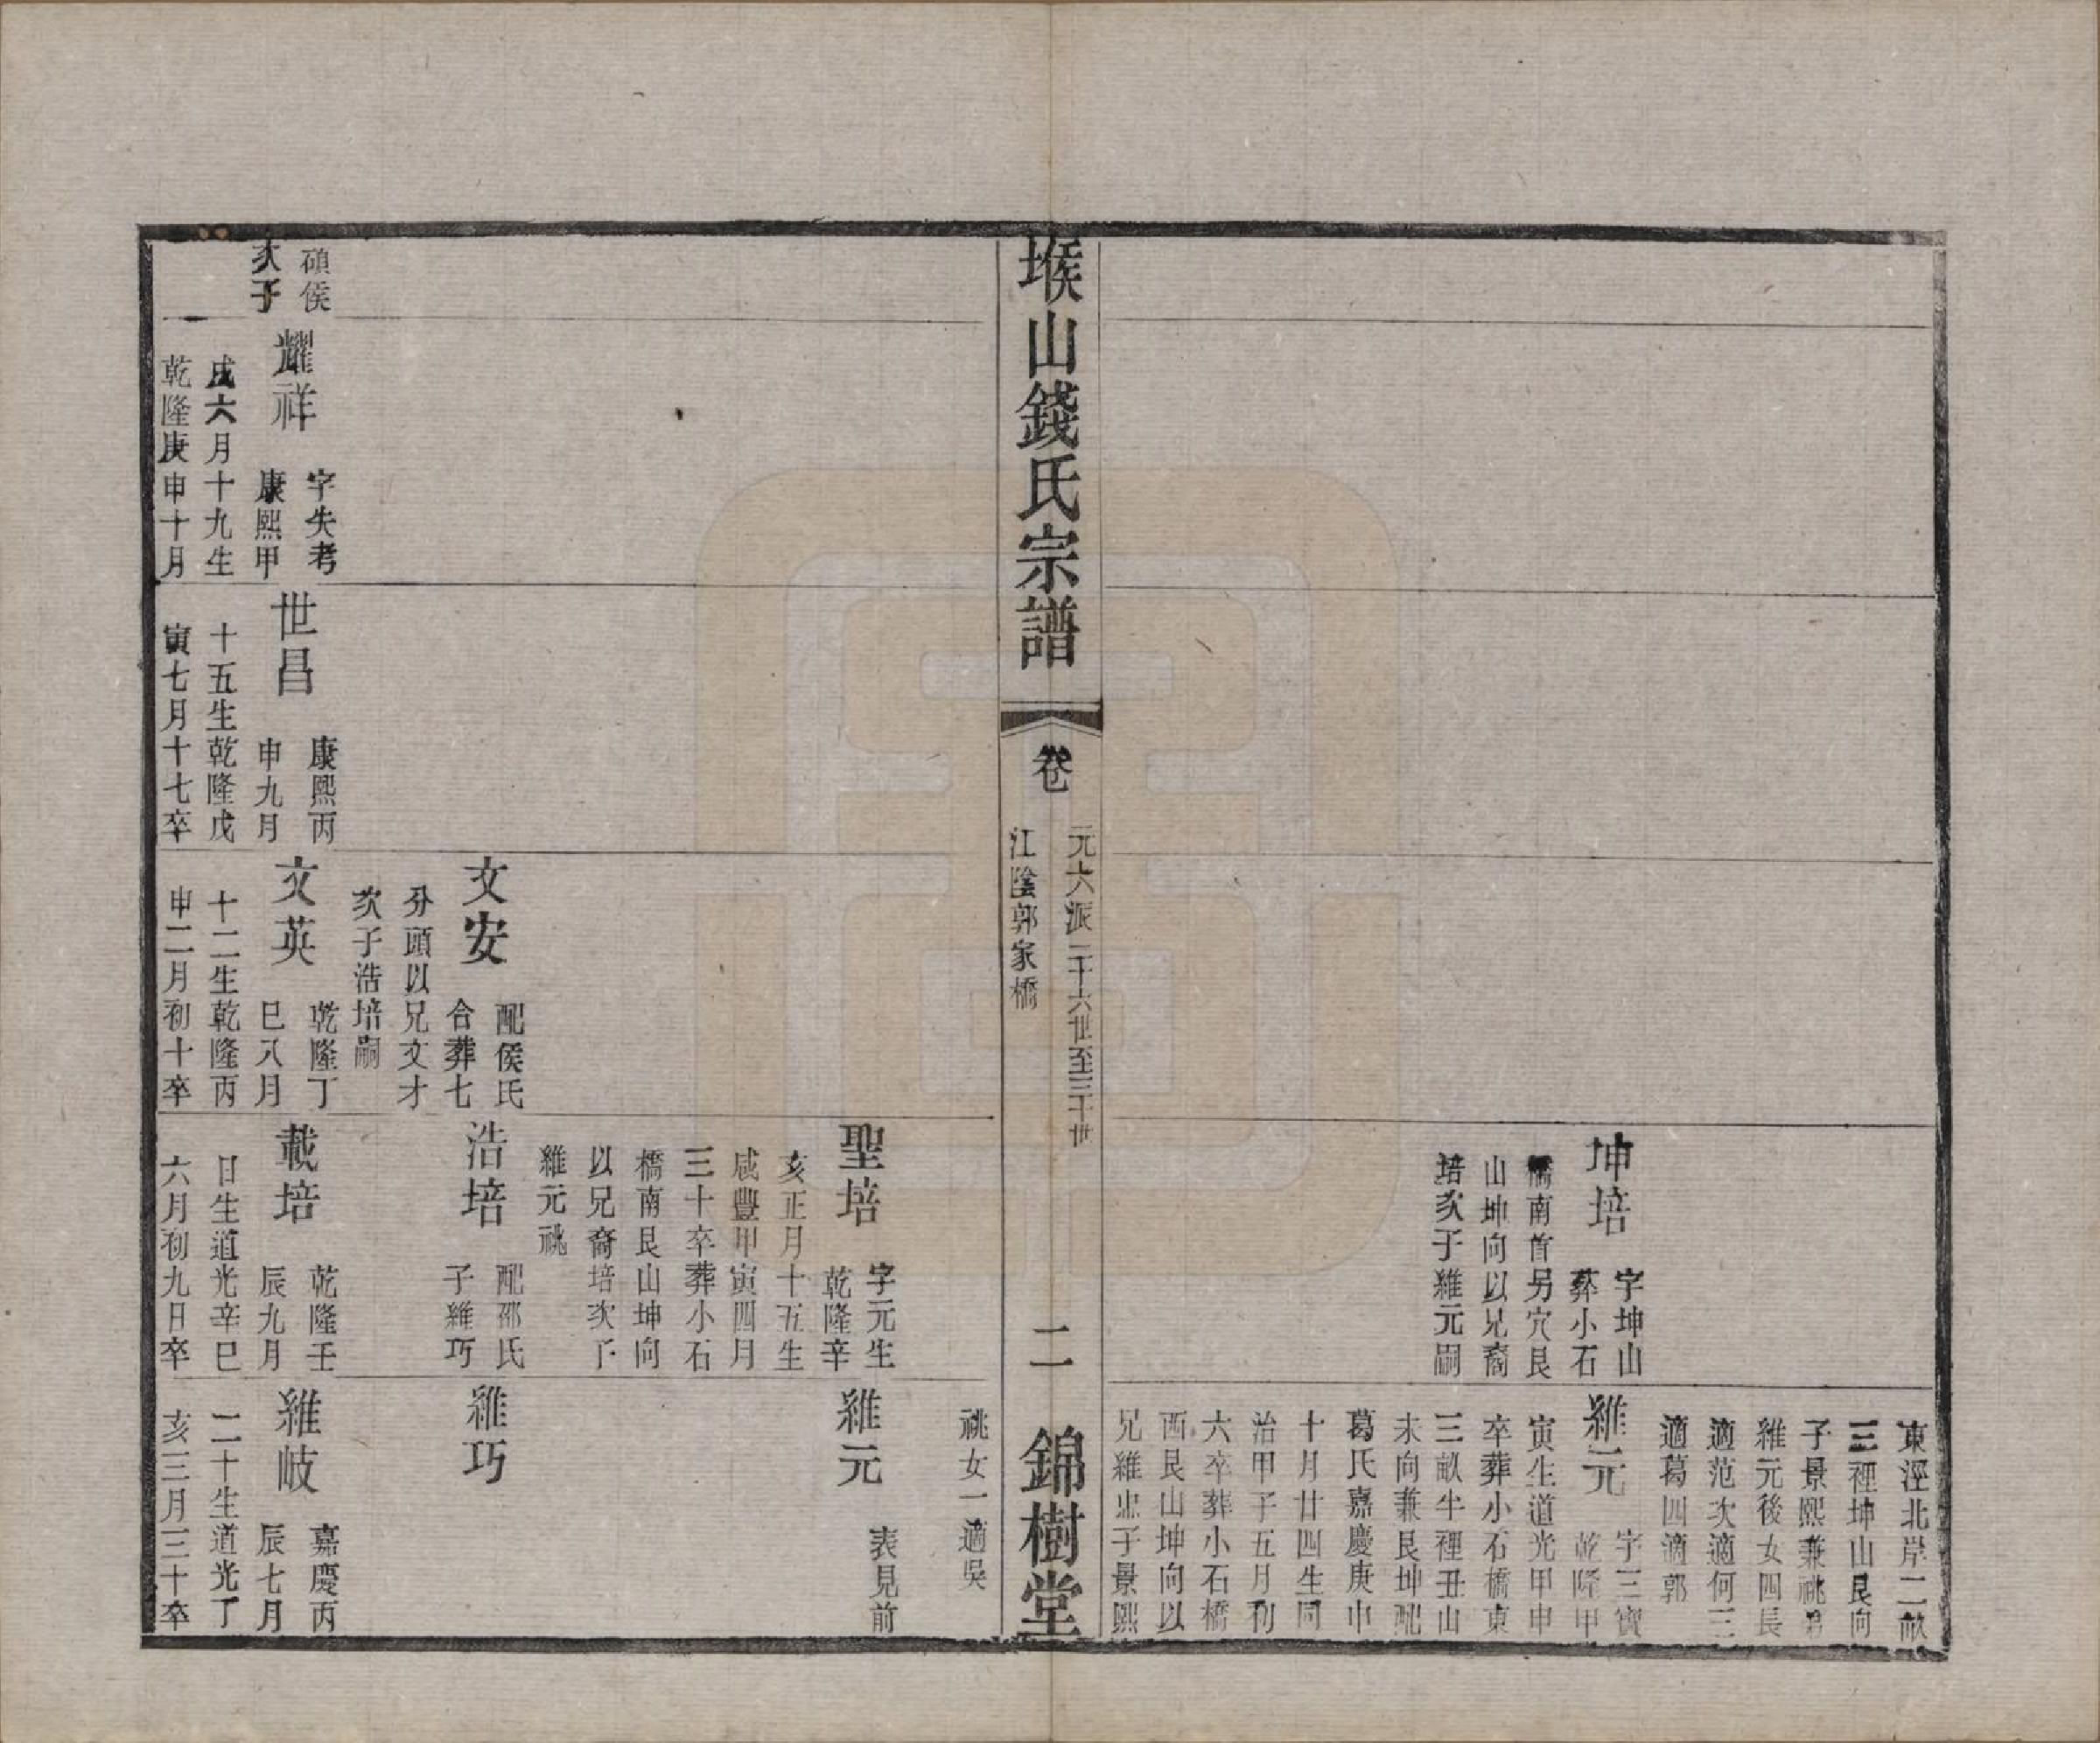 東涇北岸二畝
三裡坤山艮向
子景熙兼祧弟
維元後女四長
適范次適何三
適葛四適郭
坤培
字坤山
葬小石
橋南首另穴艮
山坤向以兄裔
培次子維元嗣
維元
字三寶
乾隆甲
寅生道光甲申
卒葬小石橋東
三畝半裡丑山
未向兼艮坤配
葛氏嘉慶庚申
十月廿四生同
治甲子五月初
六卒葬小石橋
西艮山坤向以
兄維忠子景熙
堠山錢氏宗譜
卷
元六派二十六世至三十世
江陰郭家橋
二
錦樹堂
祧女一適吳
聖培
字元生
乾隆辛
亥正月十五生
咸豐甲寅四月
三十卒葬小石
橋南艮山坤向
以兄裔培次子
維元祧
維元
表見前
文安
配侯氏
合葬七
分頭以兄文才
次子浩培嗣
浩培
配邵氏
子維巧
維巧
碩侯
次子
耀祥
字失考
康熙甲
戌六月十九生
乾隆庚申十月
世昌
康熙丙
申九月
十五生乾隆戊
寅七月十七卒
文英
乾隆丁
巳八月
十二生乾隆丙
申二月初十卒
載培
乾隆壬
辰九月
日生道光辛巳
六月初九日卒
維岐
嘉慶丙
辰七月
二十生道光丁
亥三月三十卒